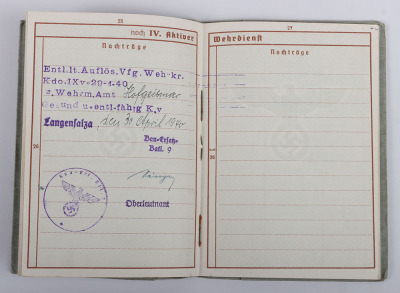 28
noch IV. Aktiver
Nachträge
Entl.lt.Auflös.Vfg.Weh-kr.
Kdo.IXv-29-1-40
z.Wehrm.Amt Hofgeismar
Gesund u.entl-fähig K.v
Langensalza, den 30 April 1940
Bau-Ersatz-
Batl. 9
26
Oberleutnant
27
Wehrdienst
Nachträge